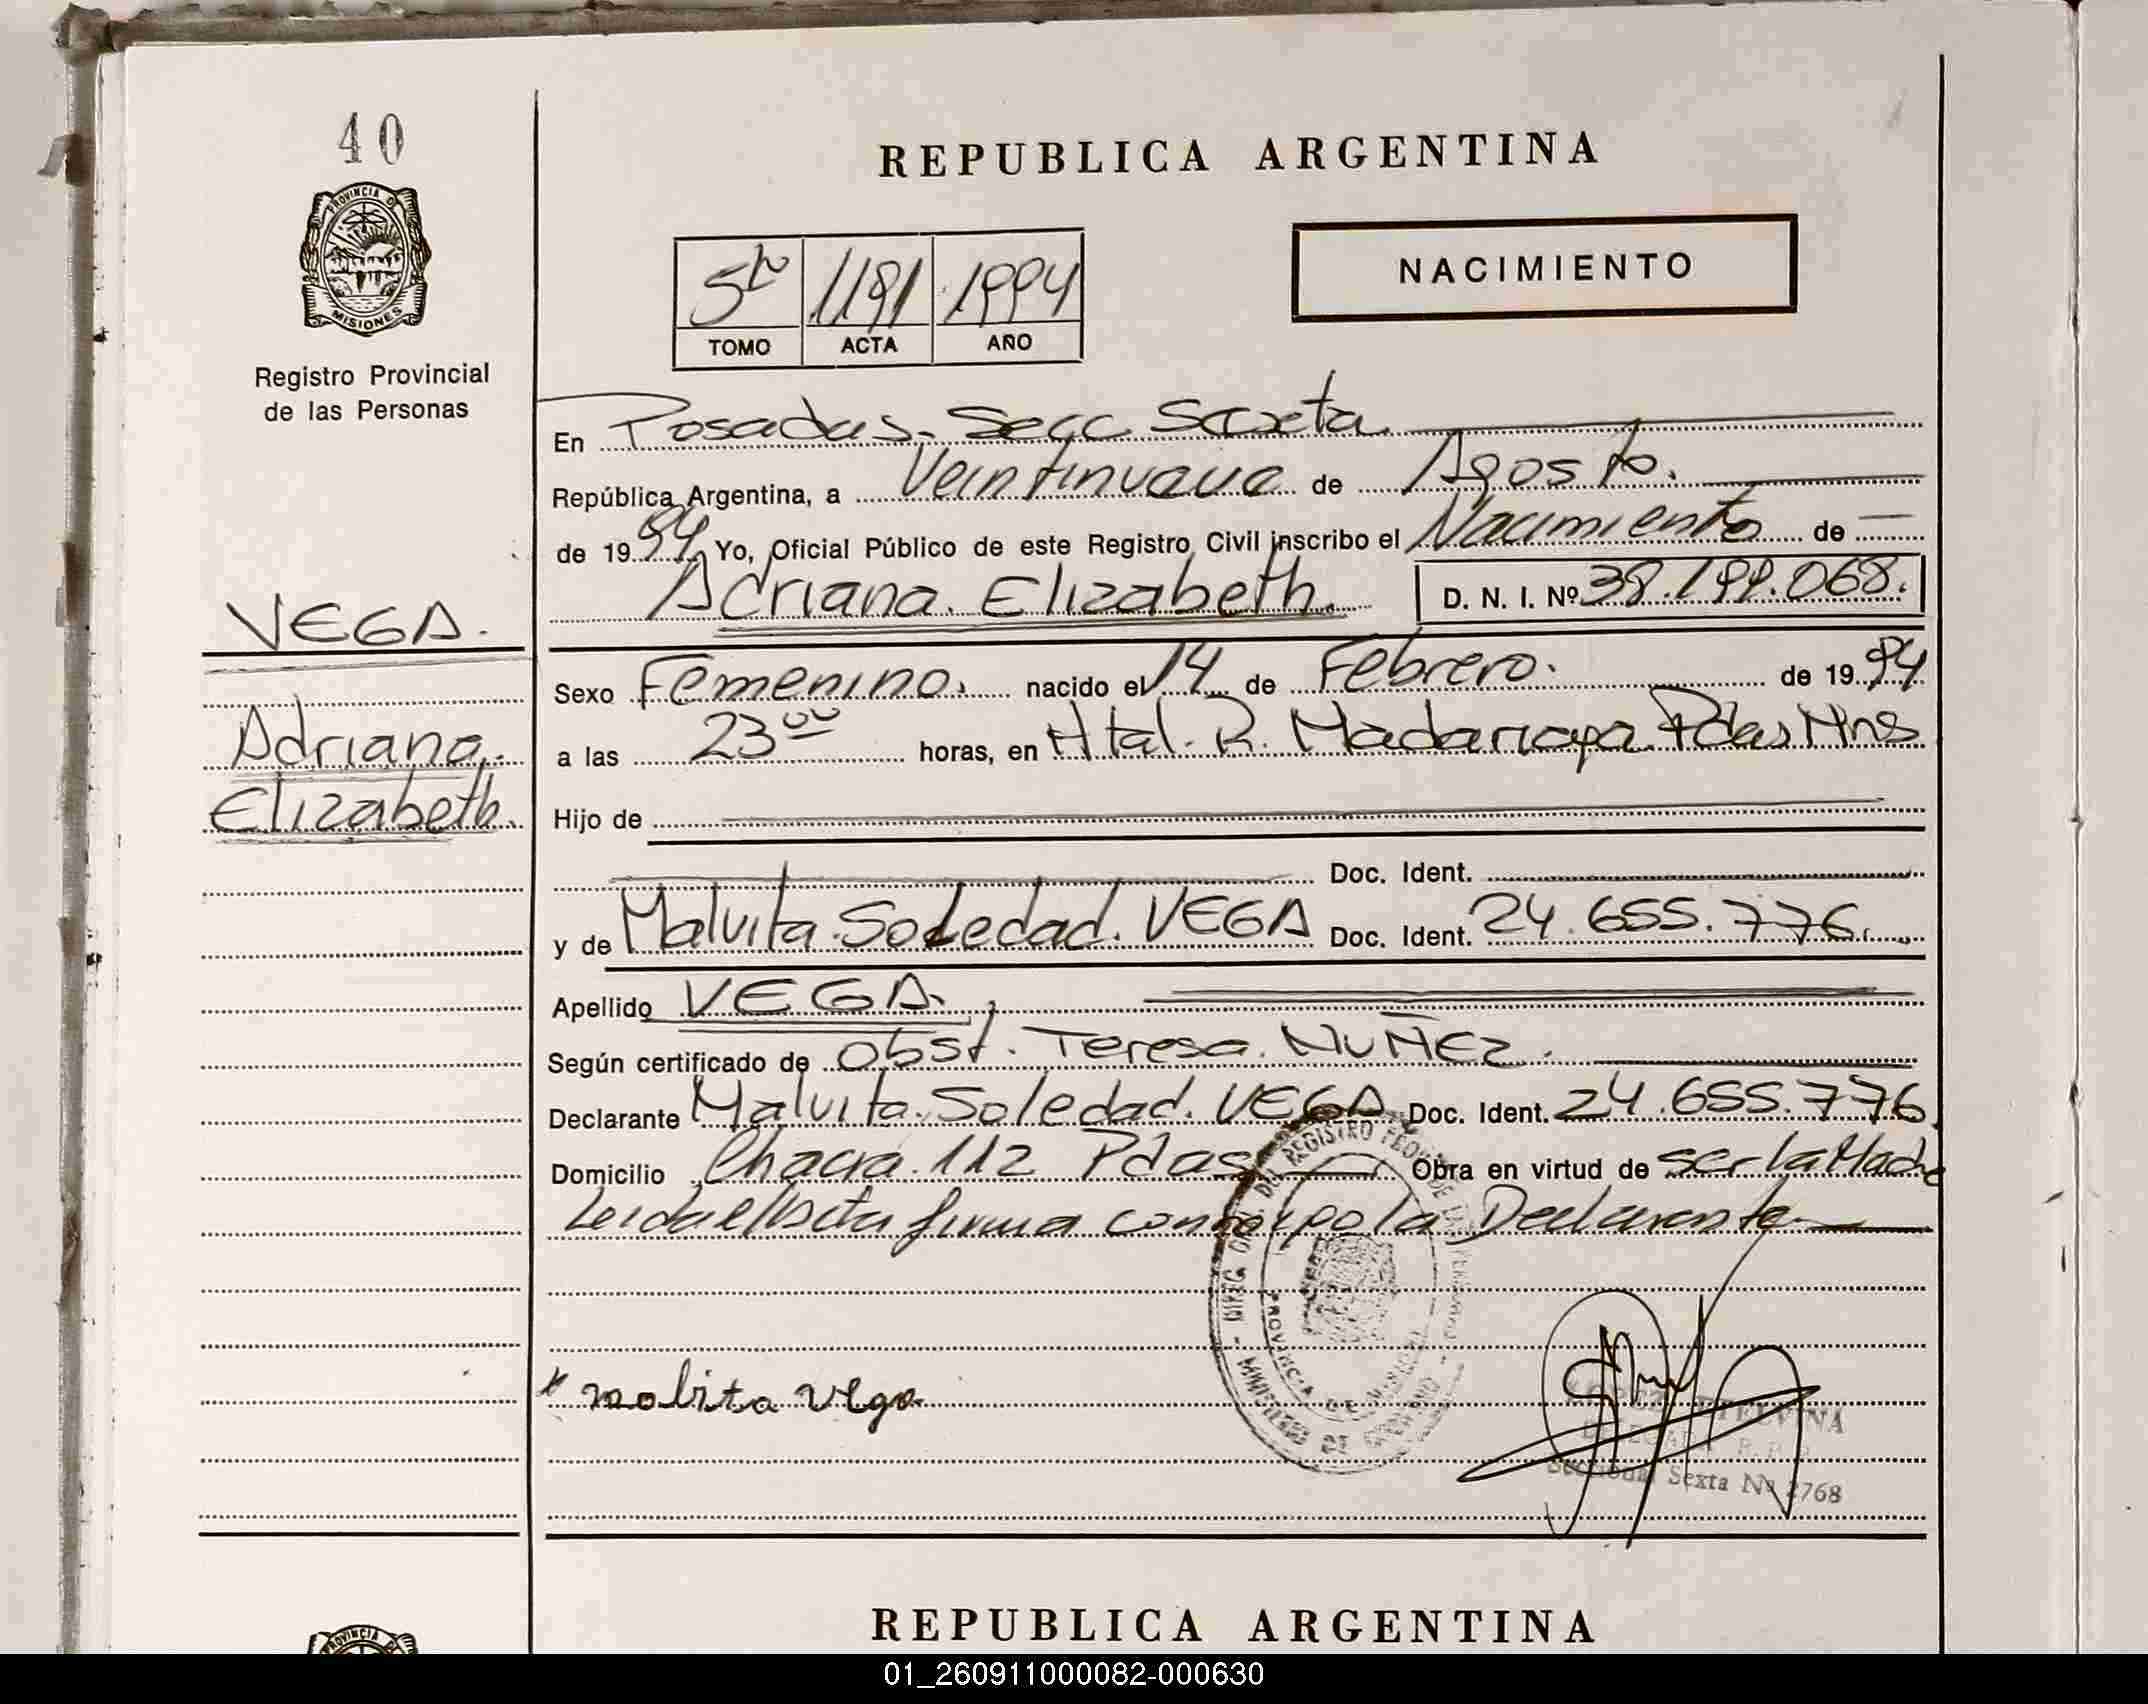 40
PROVINCIA DE
MISIONES
Registro Provincial
de las Personas
VEGA.
Adriana
Elizabeth.
REPUBLICA ARGENTINA
NACIMIENTO
5to 1191 1994
TOMO ACTA AÑO
En Posadas. Secc. Sexta.
República Argentina, a Veintinueve de Agosto.
de 1994 Yo, Oficial Público de este Registro Civil inscribo el Nacimiento de
Adriana Elizabeth. D. N. I. Nº 38.199.068.
Sexo Femenino. nacido el 14 de Febrero. de 1994
a las 23 00 horas, en Htal. R. Madariaga Pdas Mns
Hijo de
Doc. Ident.
y de Malvita Soledad. VEGA Doc. Ident. 24.655.776.
Apellido VEGA.
Según certificado de Obst. Teresa. NUÑEZ.
Declarante Malvita Soledad. VEGA Doc. Ident. 24.655.776
Domicilio Chacra 112 Pdas Obra en virtud de ser la Madre
Leida el Acta firma conmigo la Declarante
DIREC. GRAL. DEL REGISTRO PROV. DE LAS PERSONAS
PROVINCIA DE MISIONES
MINISTERIO DE GOBIERNO
malvita vega
ETELVINA
DELEGADA R. P. P.
Seccional Sexta Nº 2768
REPUBLICA ARGENTINA
PROVINCIA DE
01_260911000082-000630